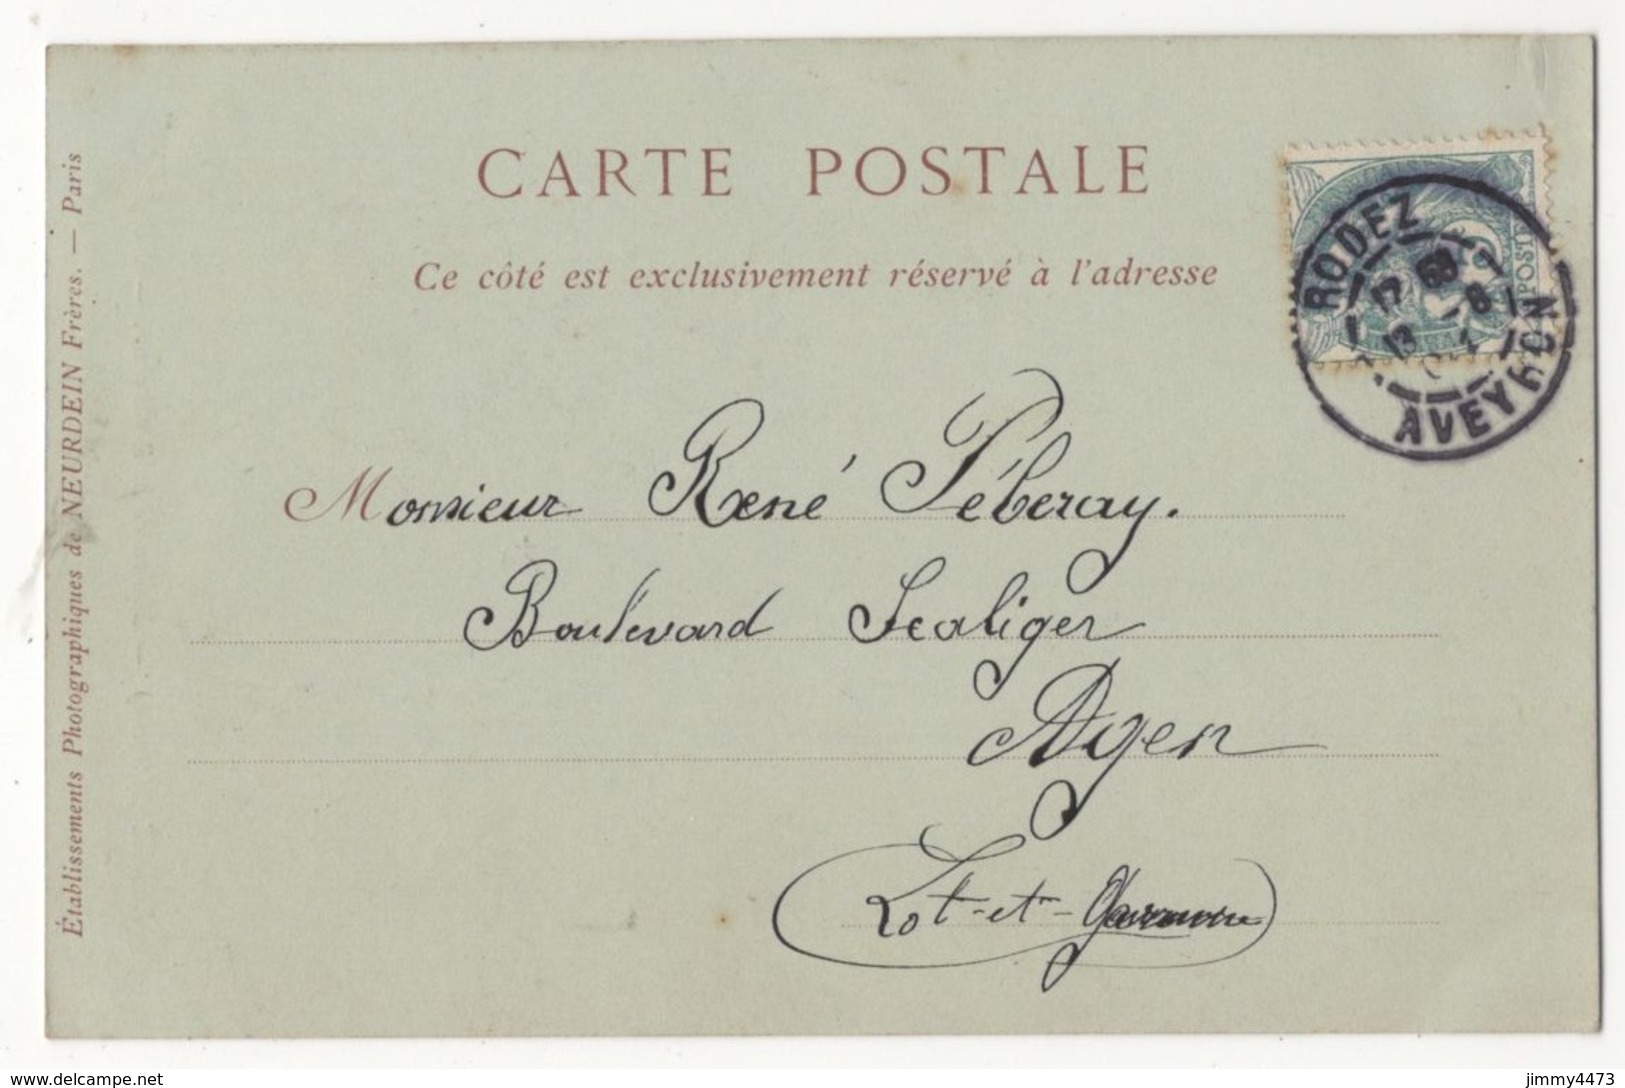 CARTE POSTALE
Ce côté est exclusivement réservé à l'adresse
Établissements Photographiques de NEURDEIN Frères. — Paris
POSTES
RODEZ
13 -8
AVEYRON
Monsieur René Péberay.
Boulevard Scaliger
Agen
Lot-et-Garonne
www.delcampe.net
jimmy4473